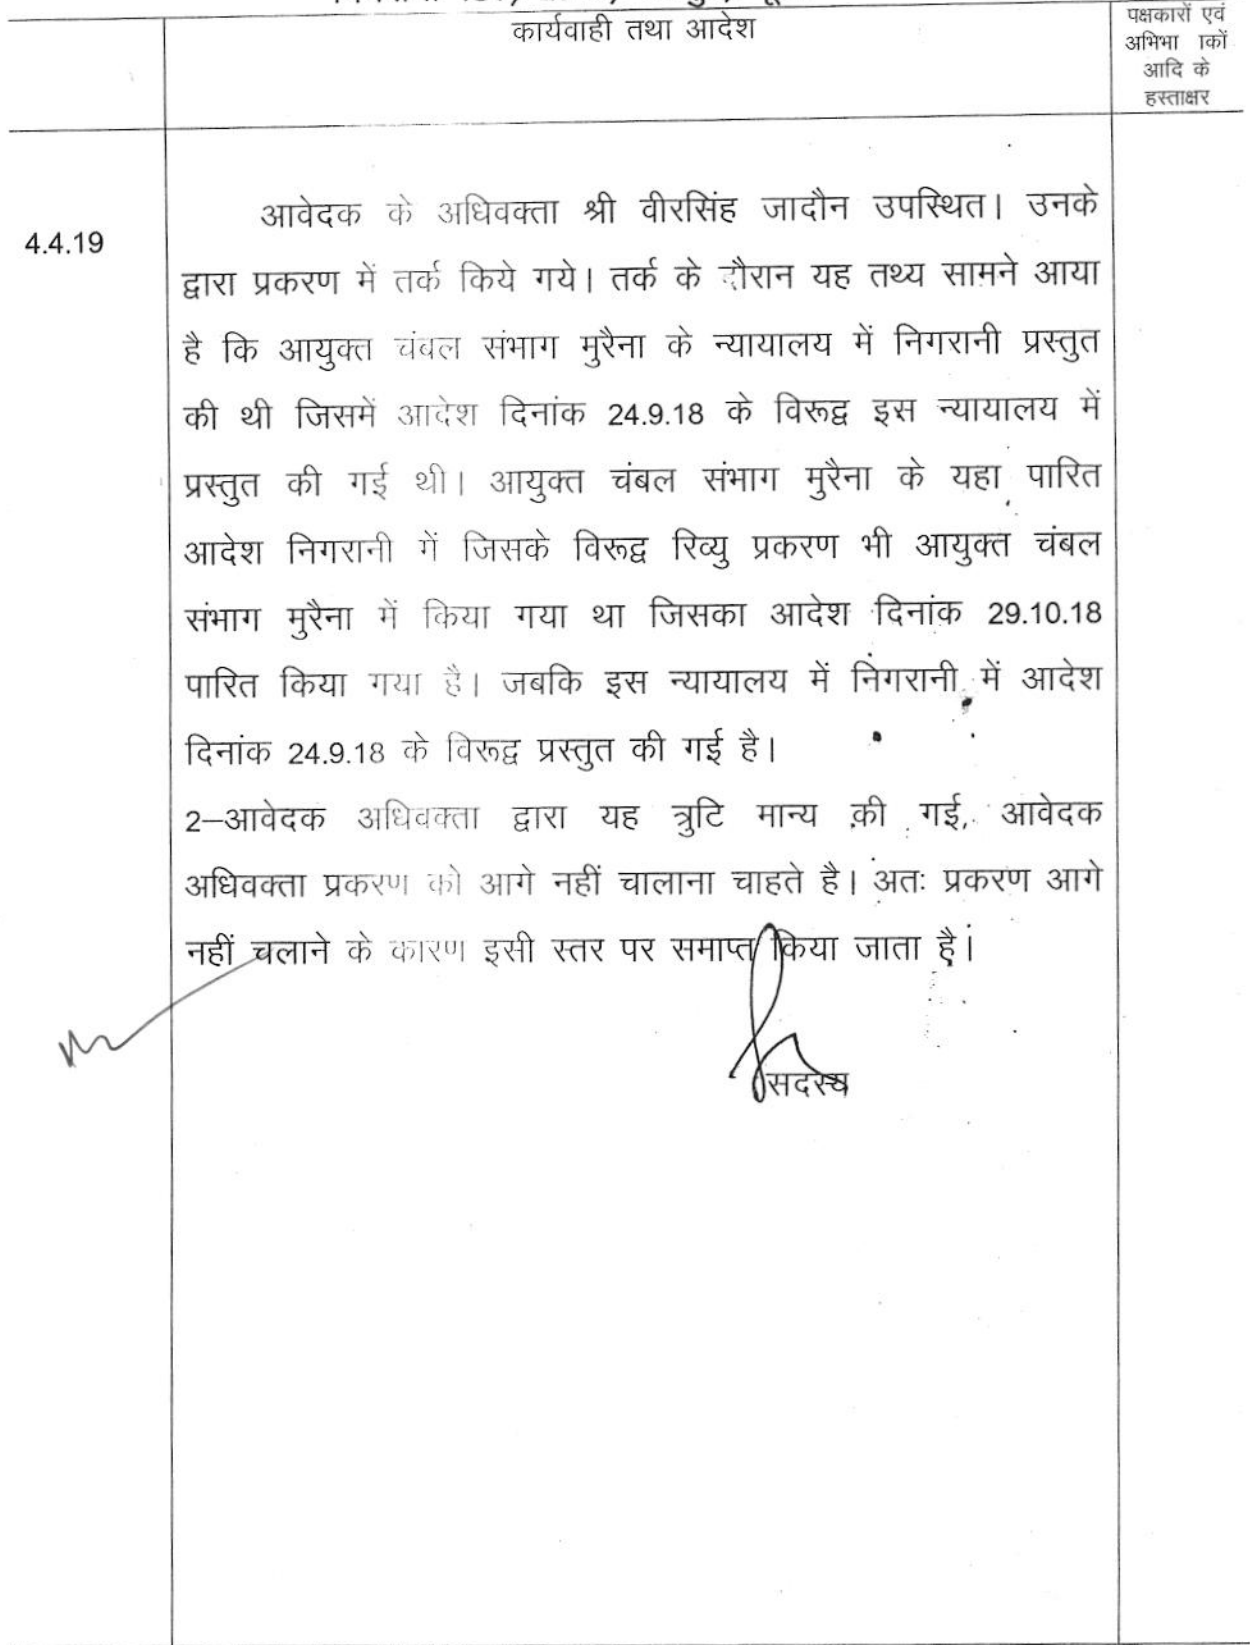 कार्यवाही तथा आदेश
पक्षकारों एवं
अभिभा कों
आदि के
हस्ताक्षर
4.4.19
आवेदक के अधिवक्ता श्री वीरसिंह जादौन उपस्थित। उनके
द्वारा प्रकरण में तर्क किये गये। तर्क के दौरान यह तथ्य सामने आया
है कि आयुक्त चंबल संभाग मुरैना के न्यायालय में निगरानी प्रस्तुत
की थी जिसमें आदेश दिनांक 24.9.18 के विरूद्व इस न्यायालय में
प्रस्तुत की गई थी। आयुक्त चंबल संभाग मुरैना के यहा पारित
आदेश निगरानी में जिसके विरूद्व रिव्यु प्रकरण भी आयुक्त चंबल
संभाग मुरैना में किया गया था जिसका आदेश दिनांक 29.10.18
पारित किया गया है। जबकि इस न्यायालय में निगरानी में आदेश
दिनांक 24.9.18 के विरूद्व प्रस्तुत की गई है।
2—आवेदक अधिवक्ता द्वारा यह त्रुटि मान्य की गई, आवेदक
अधिवक्ता प्रकरण को आगे नहीं चालाना चाहते है। अतः प्रकरण आगे
नहीं चलाने के कारण इसी स्तर पर समाप्त किया जाता है।
सदस्य